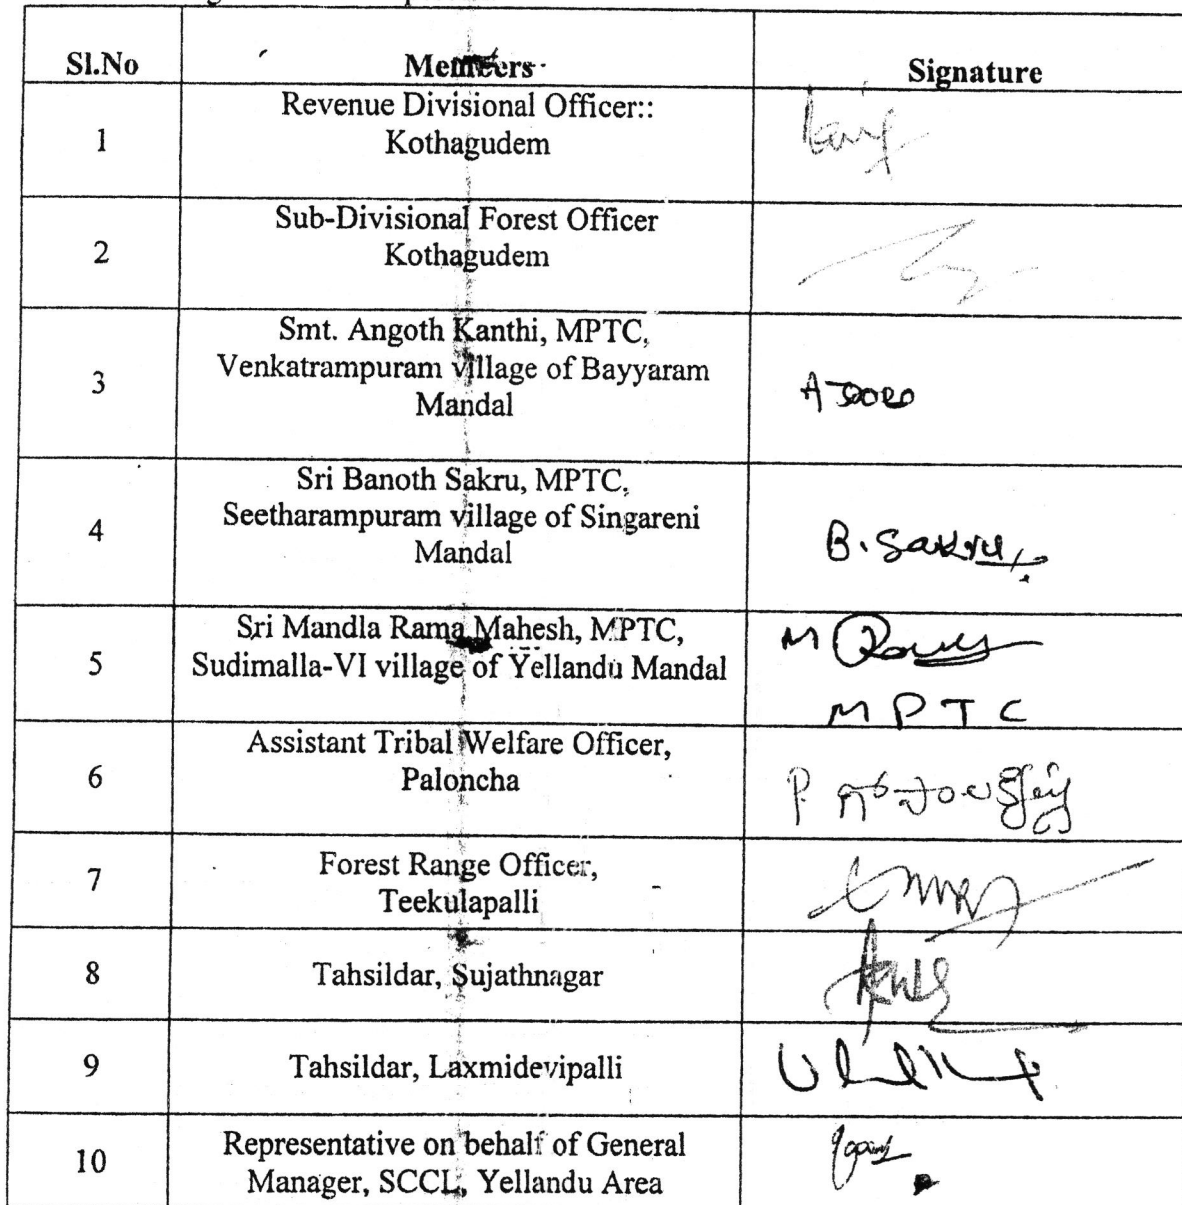 Sl.No Members Signature
1 Revenue Divisional Officer::
Kothagudem
2 Sub-Divisional Forest Officer
Kothagudem
3 Smt. Angoth Kanthi, MPTC,
Venkatrampuram village of Bayyaram
Mandal
4 Sri Banoth Sakru, MPTC,
Seetharampuram village of Singareni
Mandal
B. Sakru
5 Sri Mandla Rama Mahesh, MPTC,
Sudimalla-VI village of Yellandu Mandal
M
MPTC
6 Assistant Tribal Welfare Officer,
Paloncha
P.
7 Forest Range Officer,
Teekulapalli
8 Tahsildar, Sujathnagar
9 Tahsildar, Laxmidevipalli
10 Representative on behalf of General
Manager, SCCL, Yellandu Area